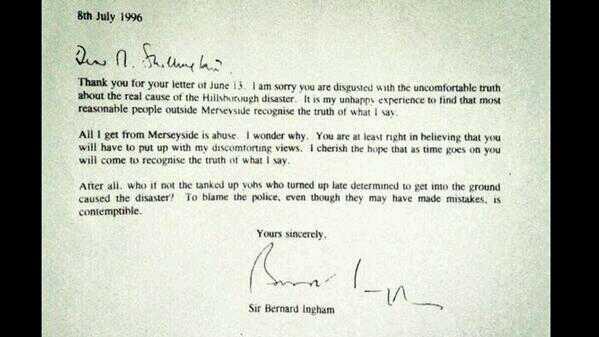 8th July 1996
Dear M.
Thank you for your letter of June 13. I am sorry you are disgusted with the uncomfortable truth
about the real cause of the Hillsborough disaster. It is my unhappy experience to find that most
reasonable people outside Merseyside recognise the truth of what I say.
All I get from Merseyside is abuse. I wonder why. You are at least right in believing that you
will have to put up with my discomforting views. I cherish the hope that as time goes on you
will come to recognise the truth of what I say.
After all, who if not the tanked up yobs who turned up late determined to get into the ground
caused the disaster? To blame the police, even though they may have made mistakes, is
contemptible.
Yours sincerely,
Sir Bernard Ingham